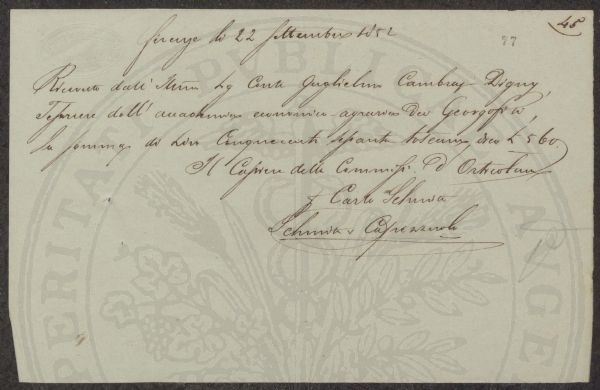 48
77
Firenze li 22 Settembre 1852
Ricevuto dall' Illmo Sig Conte Guglielmo Cambray-Digny,
Tesoriere dell' accademia economico-agraria dei Georgofili,
la somma di Lire Cinquecento sessanta toscane, dico £ 560
Il Cassiere della Commisse d' Orticoltura
Carlo Schmitz
PUBLI
PERITA
AUGE